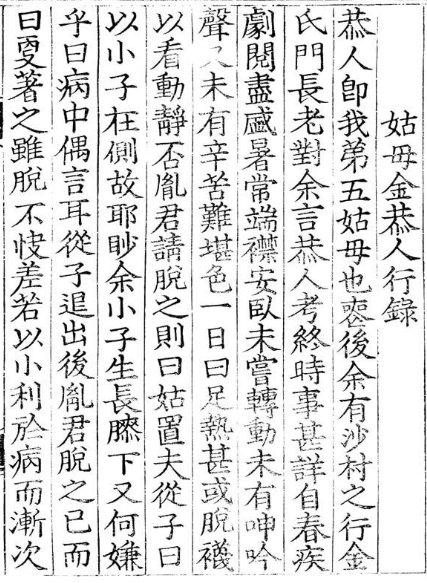 姑母金恭人行錄
恭人卽我第五姑母也喪後余有沙村之行金
氏門長老對余言恭人考終時事甚詳自春疾
劇閱盡盛暑常端襟安臥未嘗轉動未有呻吟
聲又未有辛苦難堪色一日曰足熱甚或脫襪
以看動靜否胤君請脫之則曰姑置夫從子曰
以小子在側故耶眇余小子生長膝下又何嫌
乎曰病中偶言耳從子退出後胤君脫之已而
曰更著之雖脫不快差若以小利於病而漸次